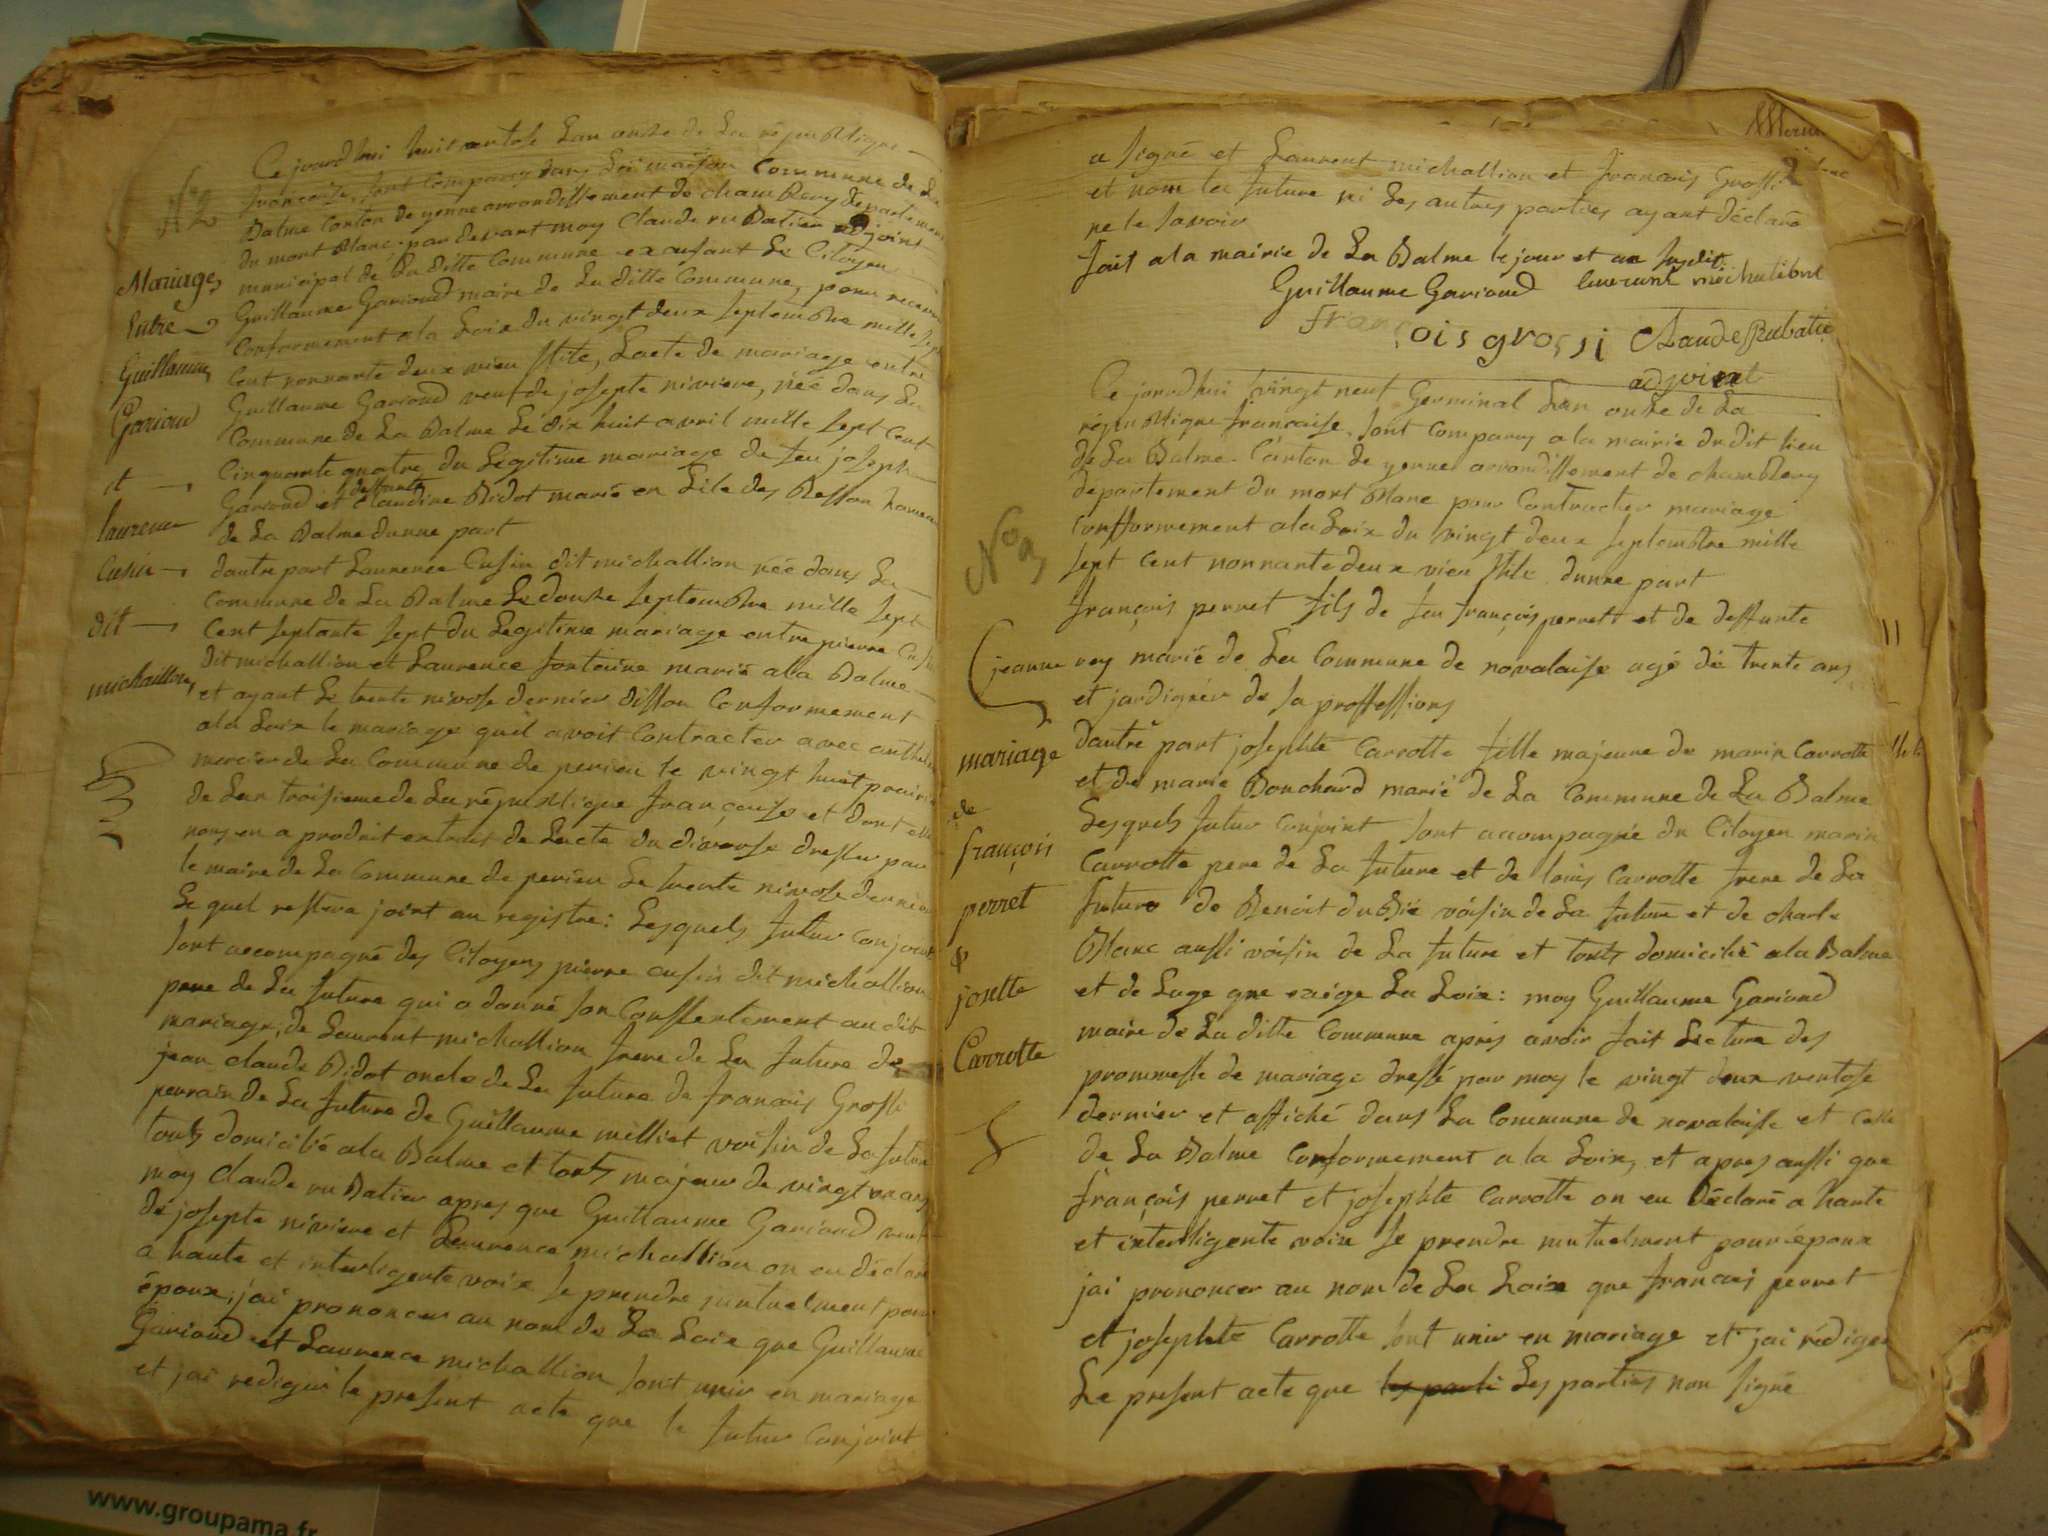 N°2
Mariage
Entre
Guillaume
Garioud
et
laurence
Cusin
dit
michallion
Cejourdhui huit ventose Lan onze de La république
francoise, sont comparus dans La maison Commune de La
Balme Canton de yenne arrondissement de chambery departement
du mont Blanc. par devant moy Claude rubatier adjoint
municipal de La ditte Commune exausant Le Citoyen
Guillaume Garioud maire de La ditte Commune, pour recevoir
Conformement a la Loix du vingt deux septembre mille sept
Cent nonnante deux vieu stile, Lacte de mariage entre
Guillaume Garioud veuf de josepte niviere, née dans La
Commune de La Balme Le dix huit avril mille sept cent
Cinquante quatre du Legitime mariage de feu joseph
Garioud et deffunte Claudine Bidot marié en Lile des Basson hameau
de La Balme dunne part
dautre part Laurence Cusin dit michallion née dans La
Commune de La Balme Le douze septembre mille sept
Cent septante sept du Legitime mariage entre pierre Cusin
dit michallion et Laurence fontaine marié a la Balme
et ayant Le trente nivose dernier dissou Conformement
a la Loix le mariage quil avoit Contracter avec anthel
mercier de La Commune de perieu le vingt huit prairial
de Lan troisieme de La république françoise et dont elle
nous en a produit extrait de Lacte du divorse dresser par
le maire de La Commune de perieu Le trente nivose dernier
Le quel restera joint au registre: Lesquels futur Conjoint
sont accompagné des Citoyens pierre cusin dit michallion
pere de La future qui a donné son Conssentement audit
mariage, de Laurent michallion frere de La future de
jean claude Bidot oncle de La future de francois Grossi
perrain de La future de Guillaume milliet voisin de La future
touts domicilié a la Balme et touts majeur de vingt un ans
moy Claude rubatier apres que Guillaume Garioud veuf
de josepte niviere et Laurence michallion on eu déclaré
a haute et interligente voix se prendre mutuelment pour
époux, jai prononcer au nom de La Loix que Guillaume
Garioud et Laurence michallion sont unir en mariage
et jai rediger le present acte que le futur Conjoint
a signé et Laurent michallion et francois Grossi
et nom la future ni Les autres parties ayant déclaré
ne le savoir
fait a la mairie de La Balme le jour et an susdit
Guillaume Garioud laurant michalliont
françois grossi Claude Rubatier
adjoint
N°3
mariage
de
françois
perret
&
josette
Carrotte
Cejourdhui vingt neuf Germinal Lan onze de La
république francaise, sont Comparus a la mairie du dit lieu
de La Balme. Canton de yenne arrondissement de chambery
département du mont Blanc pour Contracter mariage
Confformement a la Loix du vingt deux septembre mille
sept Cent nonnante deux vieu stile. dunne part
françois perret fils de feu françois perrett et de deffunte
jeanne rey marié de La Commune de novalaise agé de trente ans
et jardignier de sa proffessions
dautre part josephte Carrotte fille majeure de marin Carrotte
et de marie Bouchard marié de La Commune de La Balme
Lesquels futur Conjoint sont accompagnée du Citoyen marin
Carrotte pere de La future et de louis Carrotte frere de La
future de Benoit dubié voisin de La future et de charle
Blanc aussi voisin de La future et touts domicilié a la Balme
et de Lage que exige La Loix: moy Guillaume Garioud
maire de La ditte Commune aprés avoir fait Lecture des
prommesse de mariage dressé par moy le vingt deux ventose
dernier et affiché dans La Commune de novalaise et Celle
de La Balme Conformement a la Loix, et apres aussi que
françois perret et josephte Carrotte on eu Déclaré a haute
et interligente voix se prendre mutuelment pour époux
jai prononcer au nom de La Loix que francois perret
et josephte Carrotte sont unir en mariage et jai rédiger
Le present acte que les parti Les parties non signé
www.groupama.fr